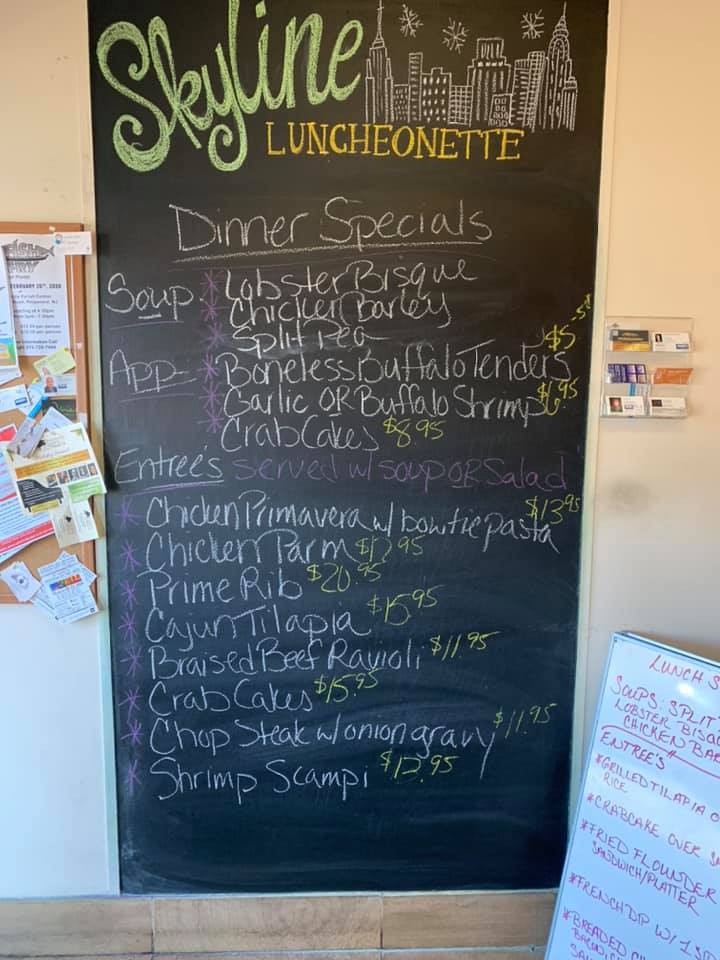 Skyline
LUNCHEONETTE
Dinner Specials
Soup: * Lobster Bisque
* Chicken Barley
* Split Pea
App * Boneless Buffalo Tenders $5.95
* Garlic OR Buffalo Shrimp $6.95
* Crab Cakes $8.95
Entree's served w/ soup OR Salad
* Chicken Primavera w/ bowtie pasta $13.95
* Chicken Parm $12.95
* Prime Rib $20.95
* Cajun Tilapia $15.95
* Braised Beef Ravioli $11.95
* Crab Cakes $15.95
* Chop Steak w/ onion gravy $11.95
* Shrimp Scampi $12.95
FISH
FRY
FEBRUARY 28th, 2020
LUNCH S
SOUPS: SPLIT
LOBSTER BISQ
CHICKEN BAR
ENTREE'S
*GRILLED TILAPIA O
RICE
*CRABCAKE OVER SA
*FRIED FLOUNDER
SANDWICH/PLATTER
*FRENCH DIP W/ 1 SID
*BREADED CH